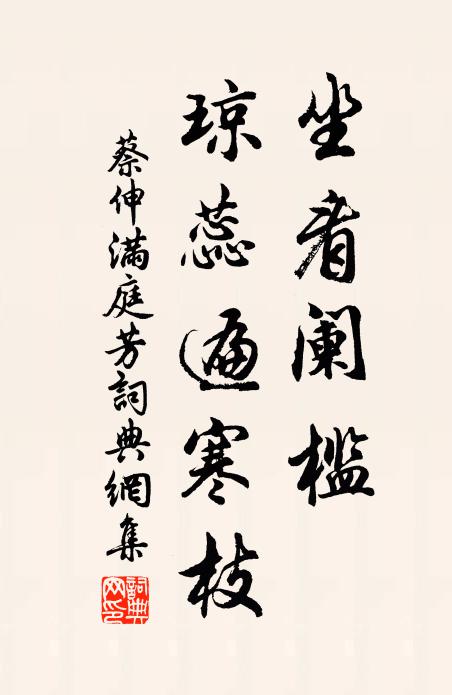 坐看阑槛
琼蕊遍寒枝
蔡伸满庭芳詞典網集
詞典网印